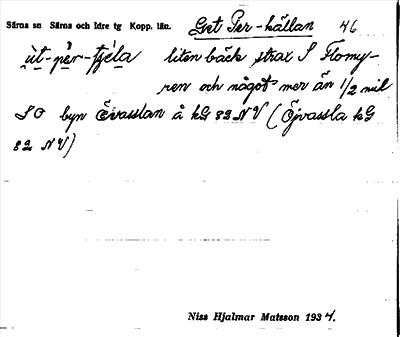 Särna sn Särna och Idre tg Kopp. län. Get Per-källan 46
ùt-pèr-tjéla liten bäck strax S Flomy-
ren och något mer än 1/2 mil
SO byn Övasslan å kG 82 NV (Öjvassla kG
82 NV)
Niss Hjalmar Matsson 1934.